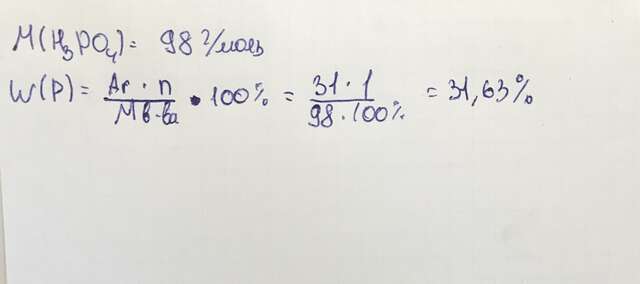 M(H₃PO₄) = 98 г/моль
W(P) = Ar · n / Mв-ва · 100% = 31 · 1 / 98 · 100% = 31,63%